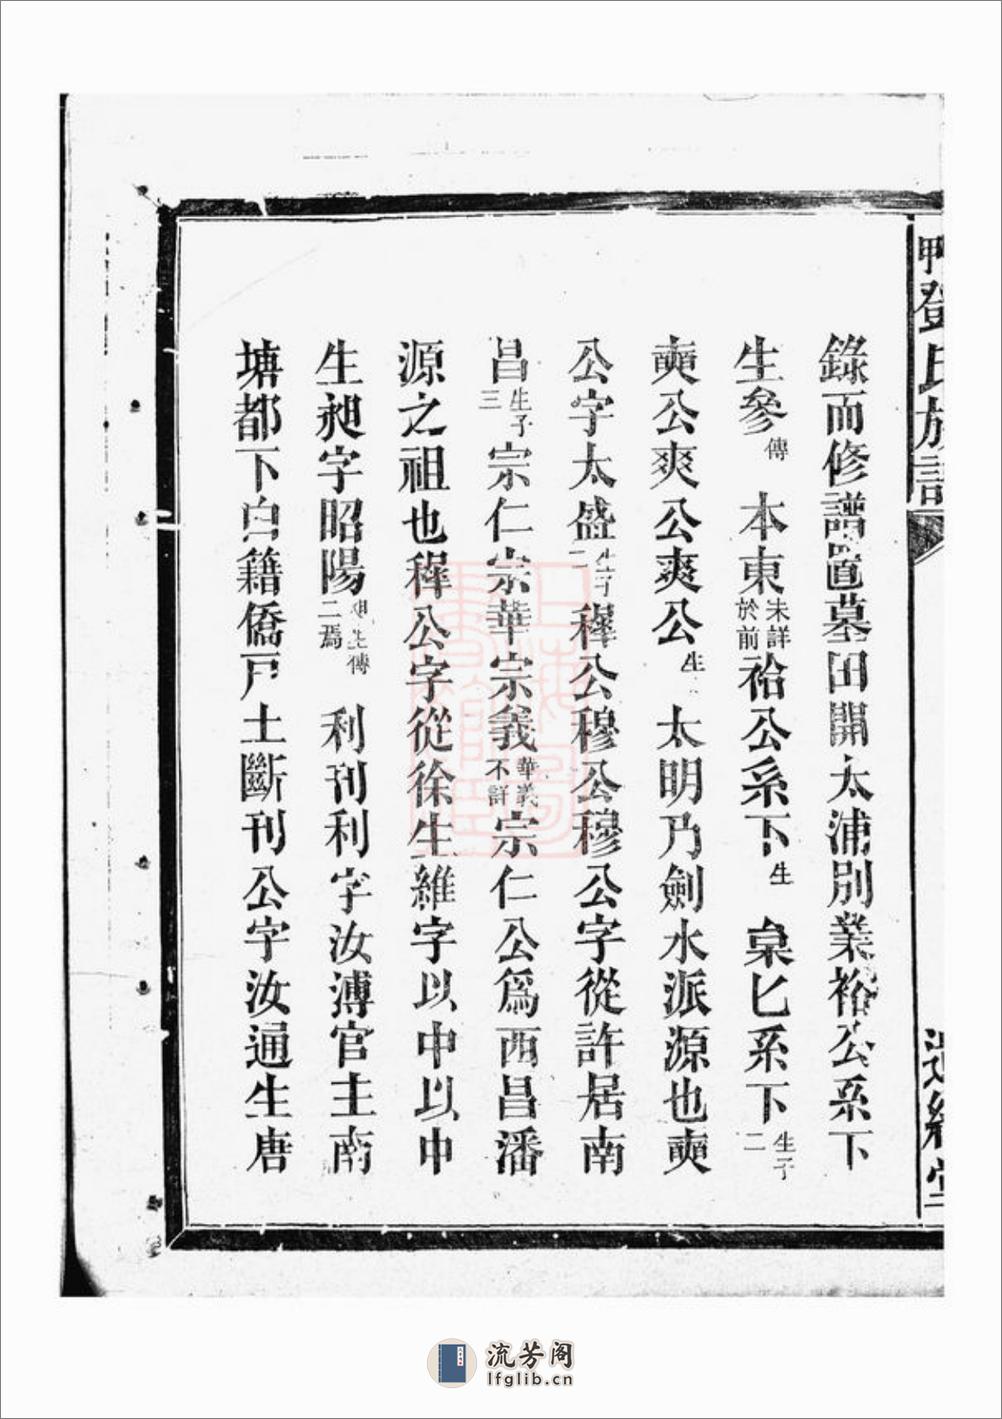 鄧氏族譜
錄而修譜置墓田開太浦別業裕公系下
生參傳本東未詳於前祫公系下生梟匕系下生子二
奭公爽公爽公生太明乃劍水派源也奭
公字太盛生子二穉公穆公穆公字從許居南
昌生子三宗仁宗華宗義華義不詳宗仁公爲西昌潘
源之祖也穉公字從徐生維字以中以中
生昶字昭陽二焉傳利刊利字汝溥官主南
塘都下白籍僑戸土斷刊公字汝通生唐
流芳阁
lfglib.cn